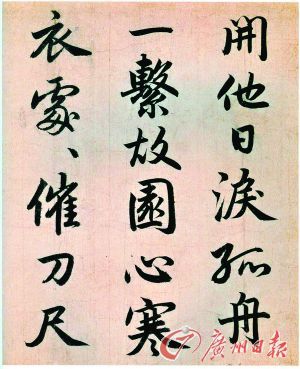 開他日淚孤舟
一繫故園心寒
衣處、催刀尺
廣州日報